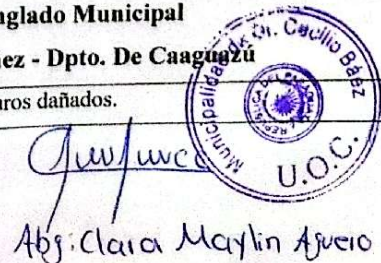 nglado Municipal
ez - Dpto. De Caaguazú
uros dañados.
Municipalidad de Dr. Cecilio Báez
REPÚBLICA DEL PARAGUAY
U.O.C.
Abg: Clara Maylin Aguero